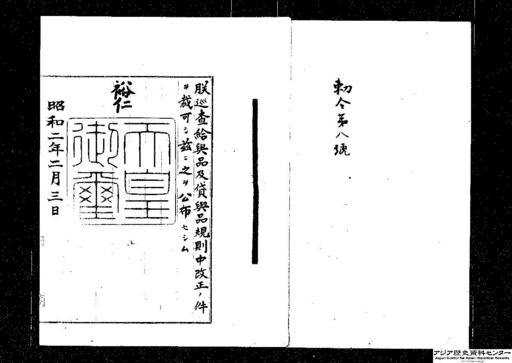 勅令第八號
朕巡査給與品及貸與品規則中改正ノ件
ヲ裁可シ玆ニ之ヲ公布セシム
裕仁
天皇御璽
昭和二年二月三日
アジア歴史資料センター
Japan Center for Asian Historical Records